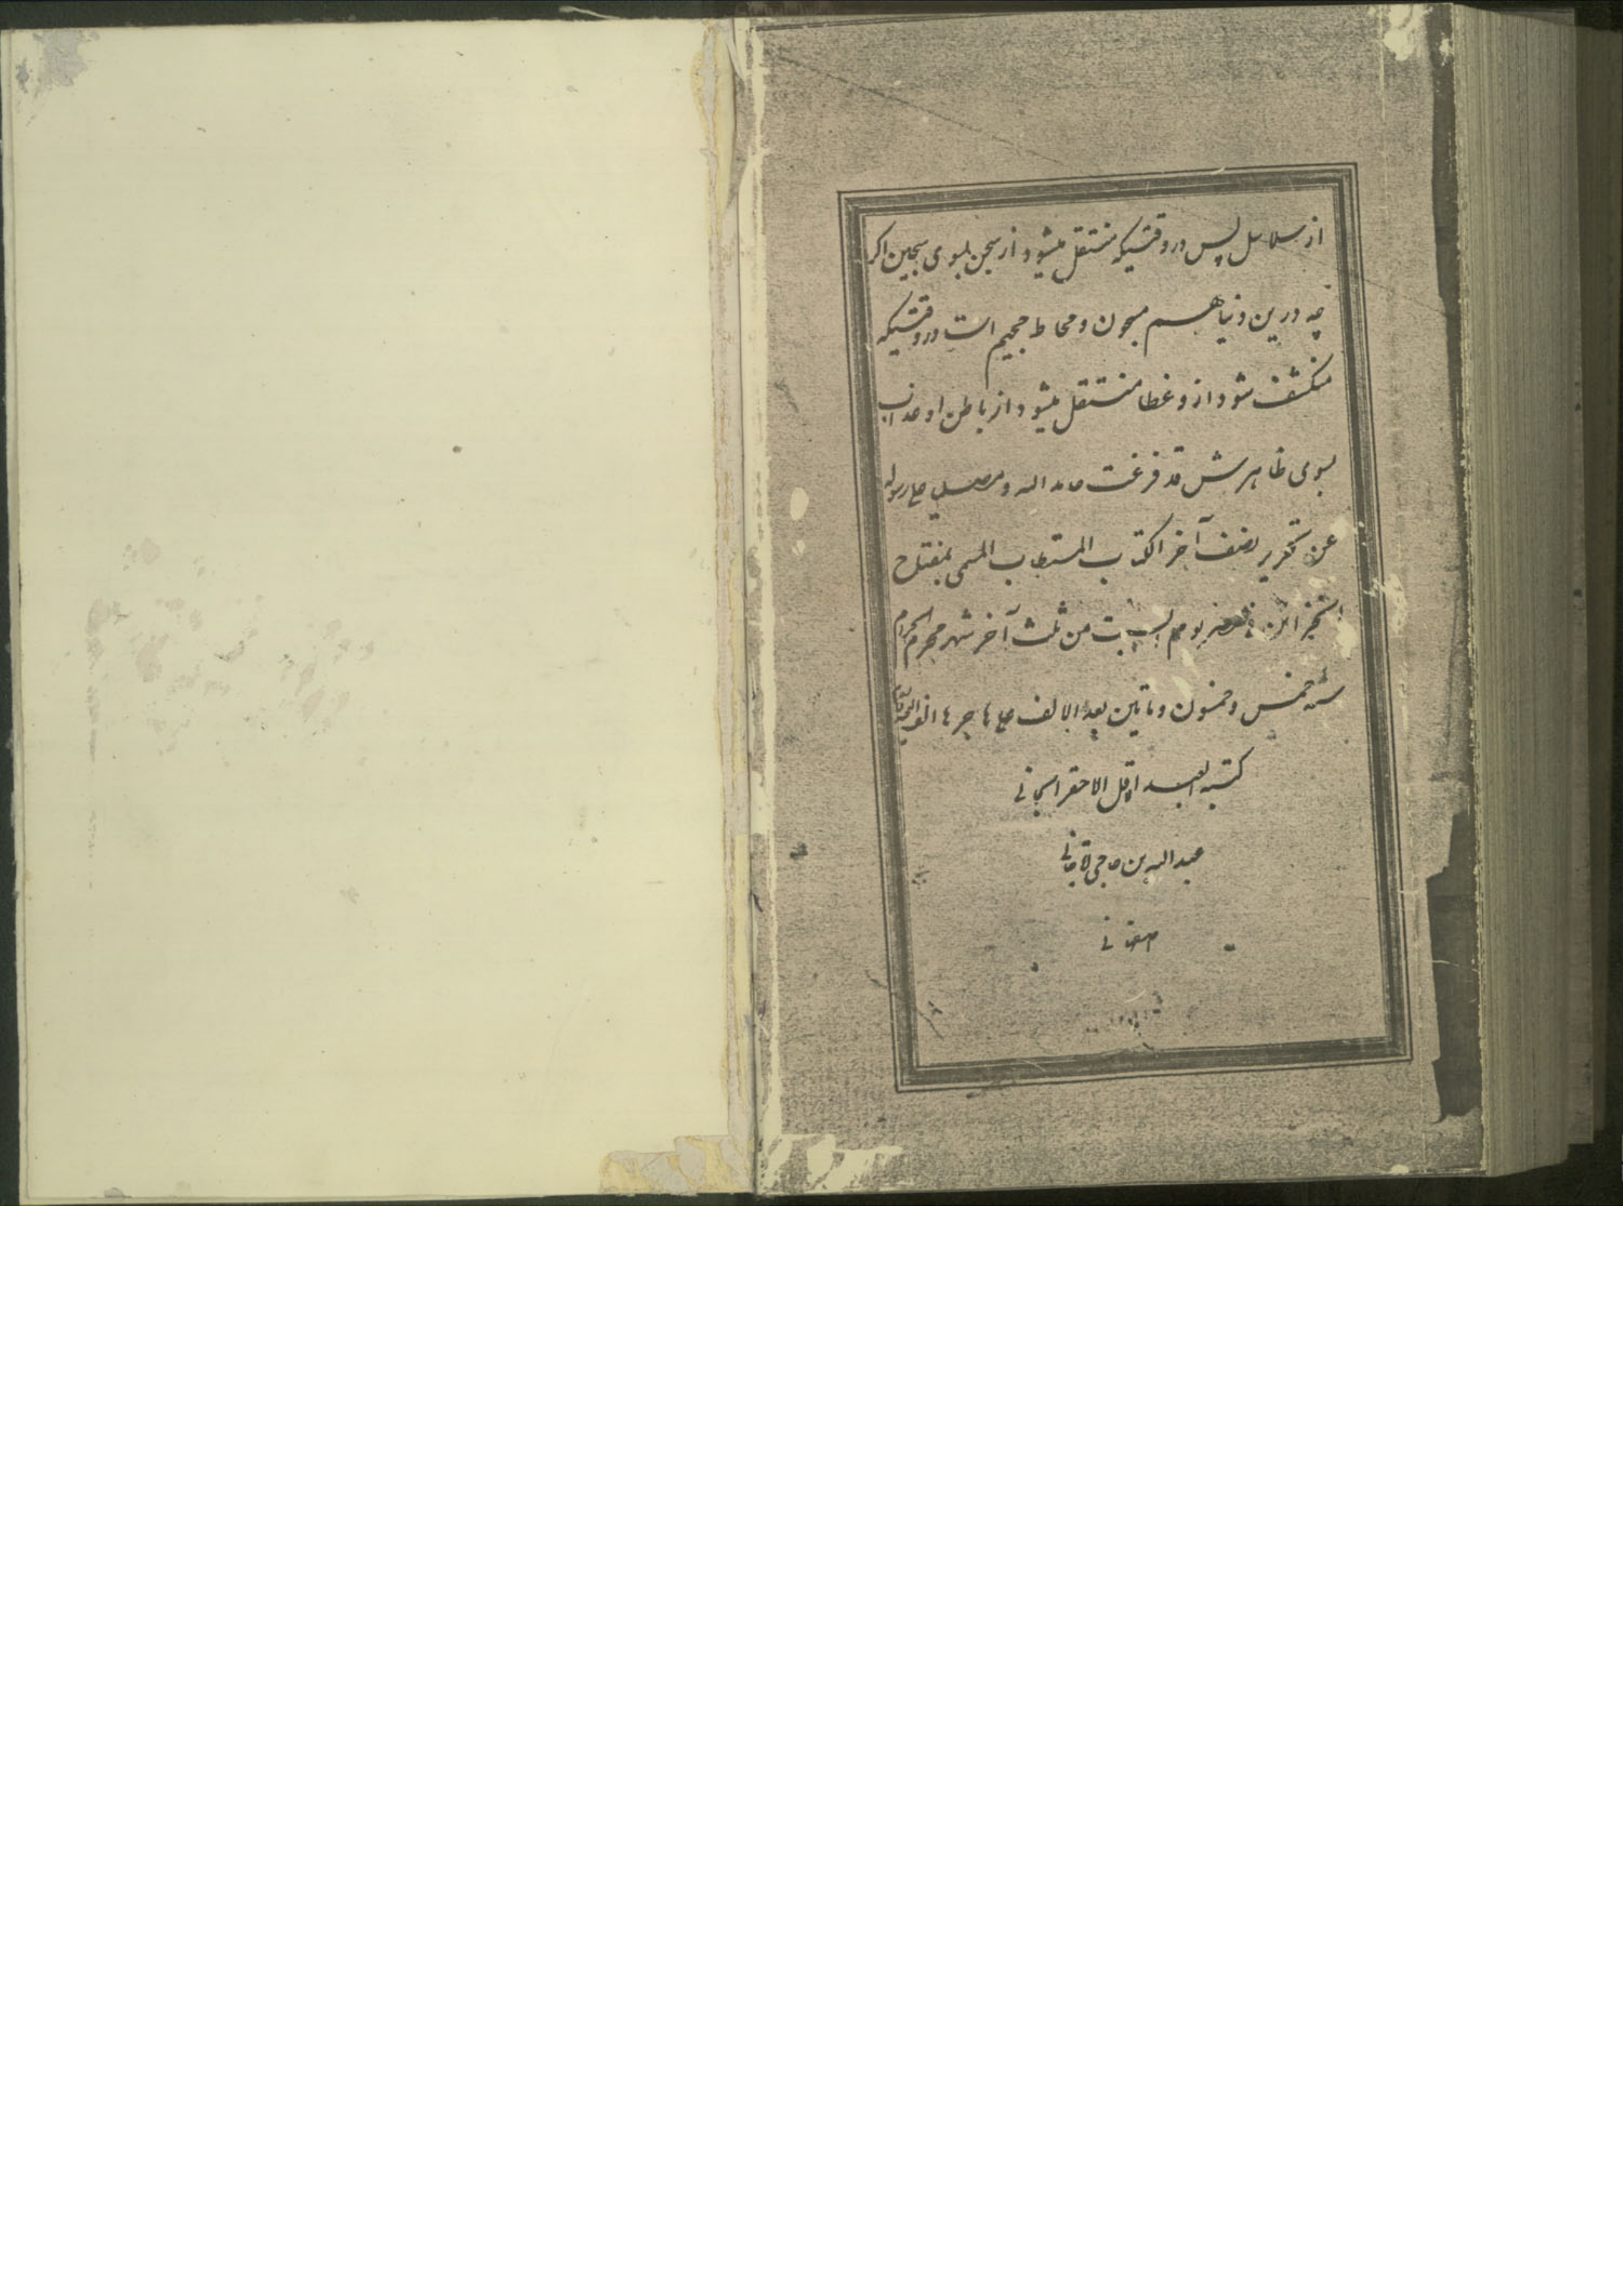 از سلاسل پس در وقتیکه منتقل میشود از سجن بسوی سجین اکر
چه درین دنیا هم مسجون و محاط جحیم است در وقتیکه
منکشف شود ازو غطا منتقل میشود از باطن او عذاب
بسوی ظاهرش قد فرغت حامد الله و مصلی علی رسوله
عن تحریر نصف آخر الکتاب المستطاب المسمی بمفتاح
الخزائن فی یوم السبت من ثلث آخر شهر محرم الحرام
سنه خمس وخمسون وماتین بعد الالف علی هاجرها الف التحیة
کتبه العبد اقل الاحقر الجانی
عبدالله بن حاجی